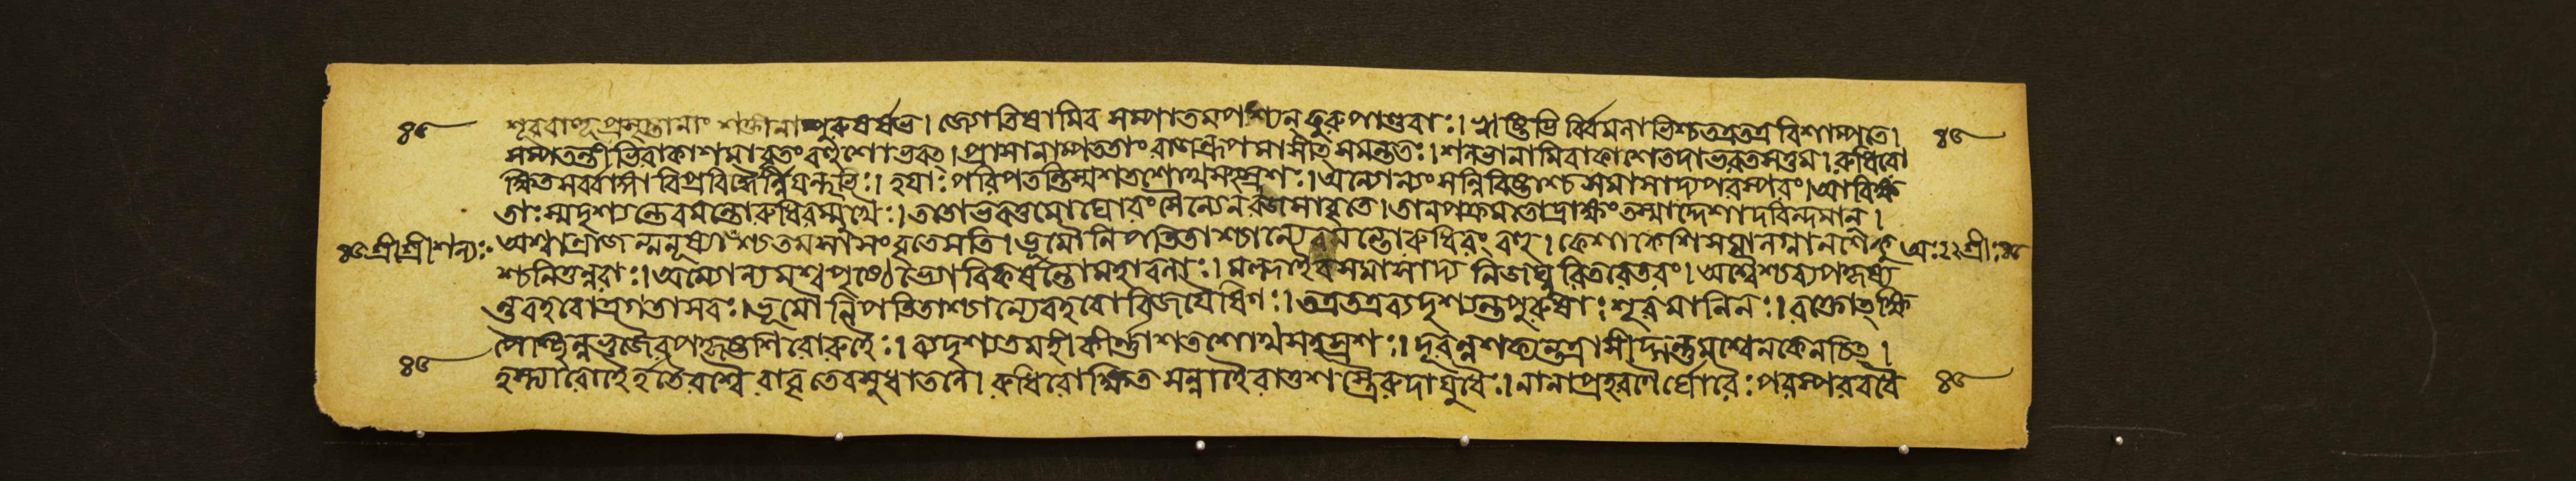 শূরবাহুপ্রসৃষ্টানাং শক্তীনাম্পুরুষর্ষভ। জ্যোতিষামিব সম্পাতমপশ্যন কুরুপাণ্ডবাঃ। ঋষ্টিভির্বিমলাভিশ্চতত্রতত্রবিশাম্পতে।
সম্পতন্তীভিরাকাশমাবৃতংবহ্বশোভত। প্রাসানাম্পততাং রাজন্রূপমাসীত্সমন্ততঃ। শলভানামিবাকাশেতদাভরতসত্তম। রুধিরো
ক্ষিতসর্বাঙ্গাবিপ্রবিদ্ধৈর্নিয়ন্তৃভিঃ। হয়াঃপরিপতন্তিস্মশতশোথসহস্রশঃ। অন্যোন্যং সন্নিবিষ্টাশ্চসমাসাদ্যপরস্পরং। আবিক্ষ
তাঃস্মদৃশ্যন্তেবমন্তোরুধিরম্মুখৈঃ। ততোভবত্তমোঘোরংসৈন্যেনরজসাবৃতে। তানপক্রমতোদ্রাক্ষংতস্মাদ্দেশাদরিন্দমান্।
অশ্বান্রাজন্মনুষ্যাংশ্চতমসাসংবৃতেসতি। ভূমৌনিপতিতাশ্চান্যেবমন্তোরুধিরং বহু। কেশাকেশিসমালগ্নানশেকু
শ্চলিতুন্নরাঃ। অন্যোন্যমশ্বপৃষ্ঠেভ্যোবিকর্ষন্তোমহাবলাঃ। মল্লাইবসমাসাদ্য নিজঘ্নুরিতরেতরং। অশ্বৈশ্চব্যপকৃষ্য
ন্তবহবোত্রগতাসবঃ। ভূমৌনিপতিতাশ্চান্যেবহবোবিজয়ৈষিণঃ। তত্রতত্রব্যদৃশ্যন্তপুরুষাঃশূরমানিনঃ। রক্তোক্ষি
তৈশ্ছিন্নভুজৈরপকৃষ্টশিরোরুহৈঃ। ব্যদৃশ্যতমহীকীর্ণাশতশোথসহস্রশঃ। দূরন্নশক্যন্তত্রাসীদ্গন্তুমশ্বেনকেনচিত্।
হস্ত্যারোহৈর্হতৈরশ্বৈরাবৃতেবসুধাতলে। রুধিরোক্ষিতসন্নাহৈরাত্তশস্ত্রৈরুদায়ুধৈঃ। নানাপ্রহরণৈর্ঘোরৈঃপরস্পরবধৈ